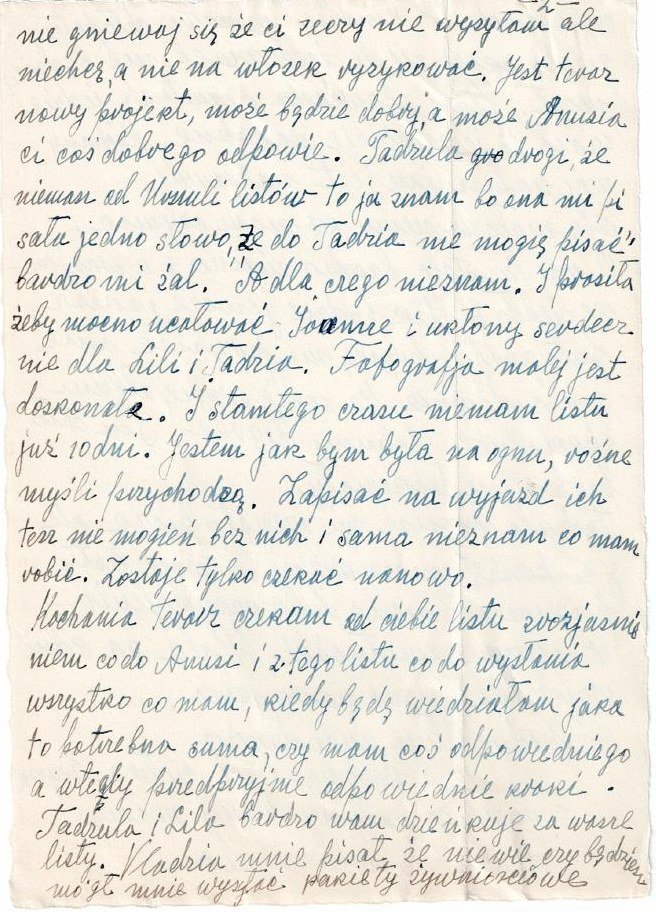 -2-
nie gniewaj się że ci rzeczy nie wysyłam ale
niechcę, a nie na włosek ryzykować. Jest teraz
nowy projekt, może będzie dobry, a może Anusia
ci coś dobrego odpowie. Tadzula drogi, że
niemasz od Urszuli listów to ja znam bo ona mi pi
sała jedno słowo, "Że do Tadzia nie mogię pisać"
bardzo mi żal." A dla czego nieznam. I prosiła
żeby mocno ucałować Joanne i ukłony serdecz
nie dla Lili i Tadzia. Fotografja małej jest
doskonałe. I stamtego czasu niemam listu
już 10 dni. Jestem jak bym była na ogniu, różne
myśli przychodzą. Zapisać na wyjazd ich
tesz nie mogień bez nich i sama nieznam co mam
robić. Zostaje tylko czekać nanowo.
Kochania teraz czekam od ciebie listu zrozjaśnie
niem co do Anusi i z tego listu co do wysłania
wszystko co mam, kiedy będę wiedziałam jaka
to potrebna suma, czy mam coś odpowiedniego
a wtedy przedpryjme odpowiednie kroki.
Tadzula i Lila bardzo wam dzieńkuje za wasze
listy. Vladzia mnie pisał, że nie wie czy będzie
mógł mnie wysłać pakiety żywniościowe